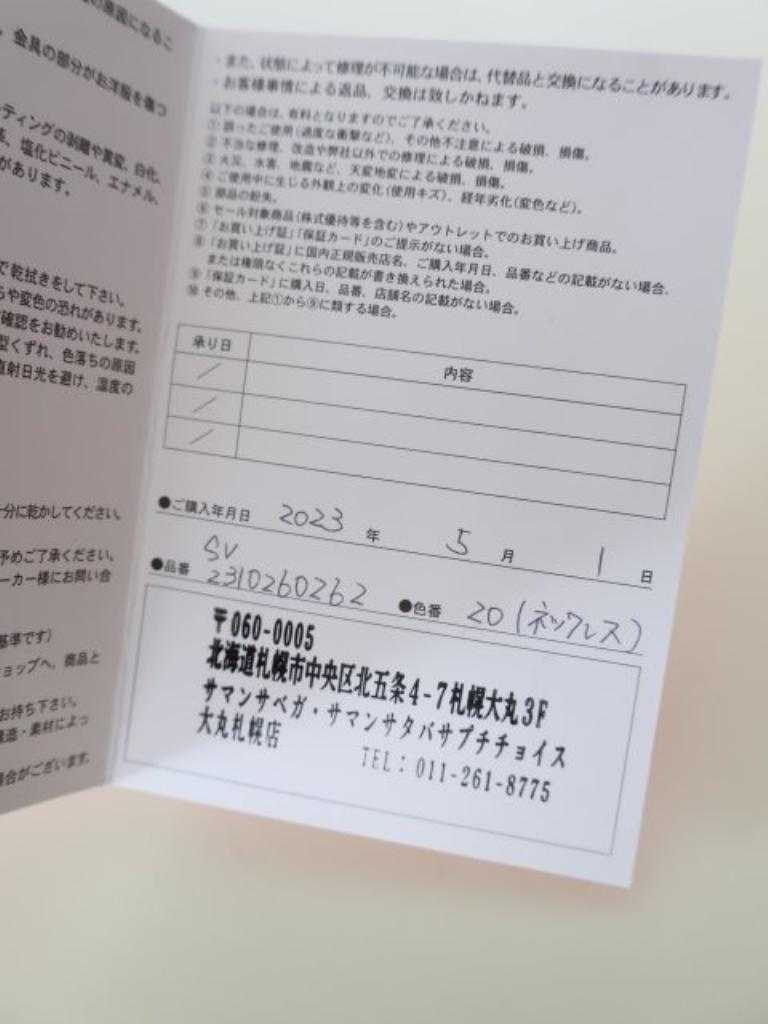 の原因になるこ
金具の部分がお洋服を傷つ
ティングの剥離や黄変、白化、
塩化ビニール、エナメル、
があります。
で乾拭きをして下さい。
や変色の恐れがあります。
確認をお勧めいたします。
型くずれ、色落ちの原因
直射日光を避け、温度の
十分に乾かしてください。
予めご了承ください。
ーカー様にお問い合
基準です)
ョップへ、商品と
お持ち下さい。
構造・素材によっ
場合がございます。
・また、状態によって修理が不可能な場合は、代替品と交換になることがあります。
・お客様事情による返品、交換は致しかねます。
以下の場合は、有料となりますのでご了承ください。
①誤ったご使用(過度な衝撃など)、その他不注意による破損、損傷。
②不当な修理、改造や弊社以外での修理による破損、損傷。
③火災、水害、地震など、天変地変による破損、損傷。
④ご使用中に生じる外観上の変化(使用キズ)、経年劣化(変色など)。
⑤部品の紛失。
⑥セール対象商品(株式優待等を含む)やアウトレットでのお買い上げ商品。
⑦「お買い上げ証」「保証カード」のご提示がない場合。
⑧「お買い上げ証」に国内正規販売店名、ご購入年月日、品番などの記載がない場合、
または権限なくこれらの記載が書き換えられた場合。
⑨「保証カード」に購入日、品番、店舗名の記載がない場合。
⑩その他、上記①から⑨に類する場合。
承り日 内容
／
／
／
●ご購入年月日 2023 年 5 月 1 日
SV
●品番 2310260262 ●色番 20(ネックレス)
〒060-0005
北海道札幌市中央区北五条4-7札幌大丸3F
サマンサベガ・サマンサタバサプチチョイス
大丸札幌店
TEL：011-261-8775